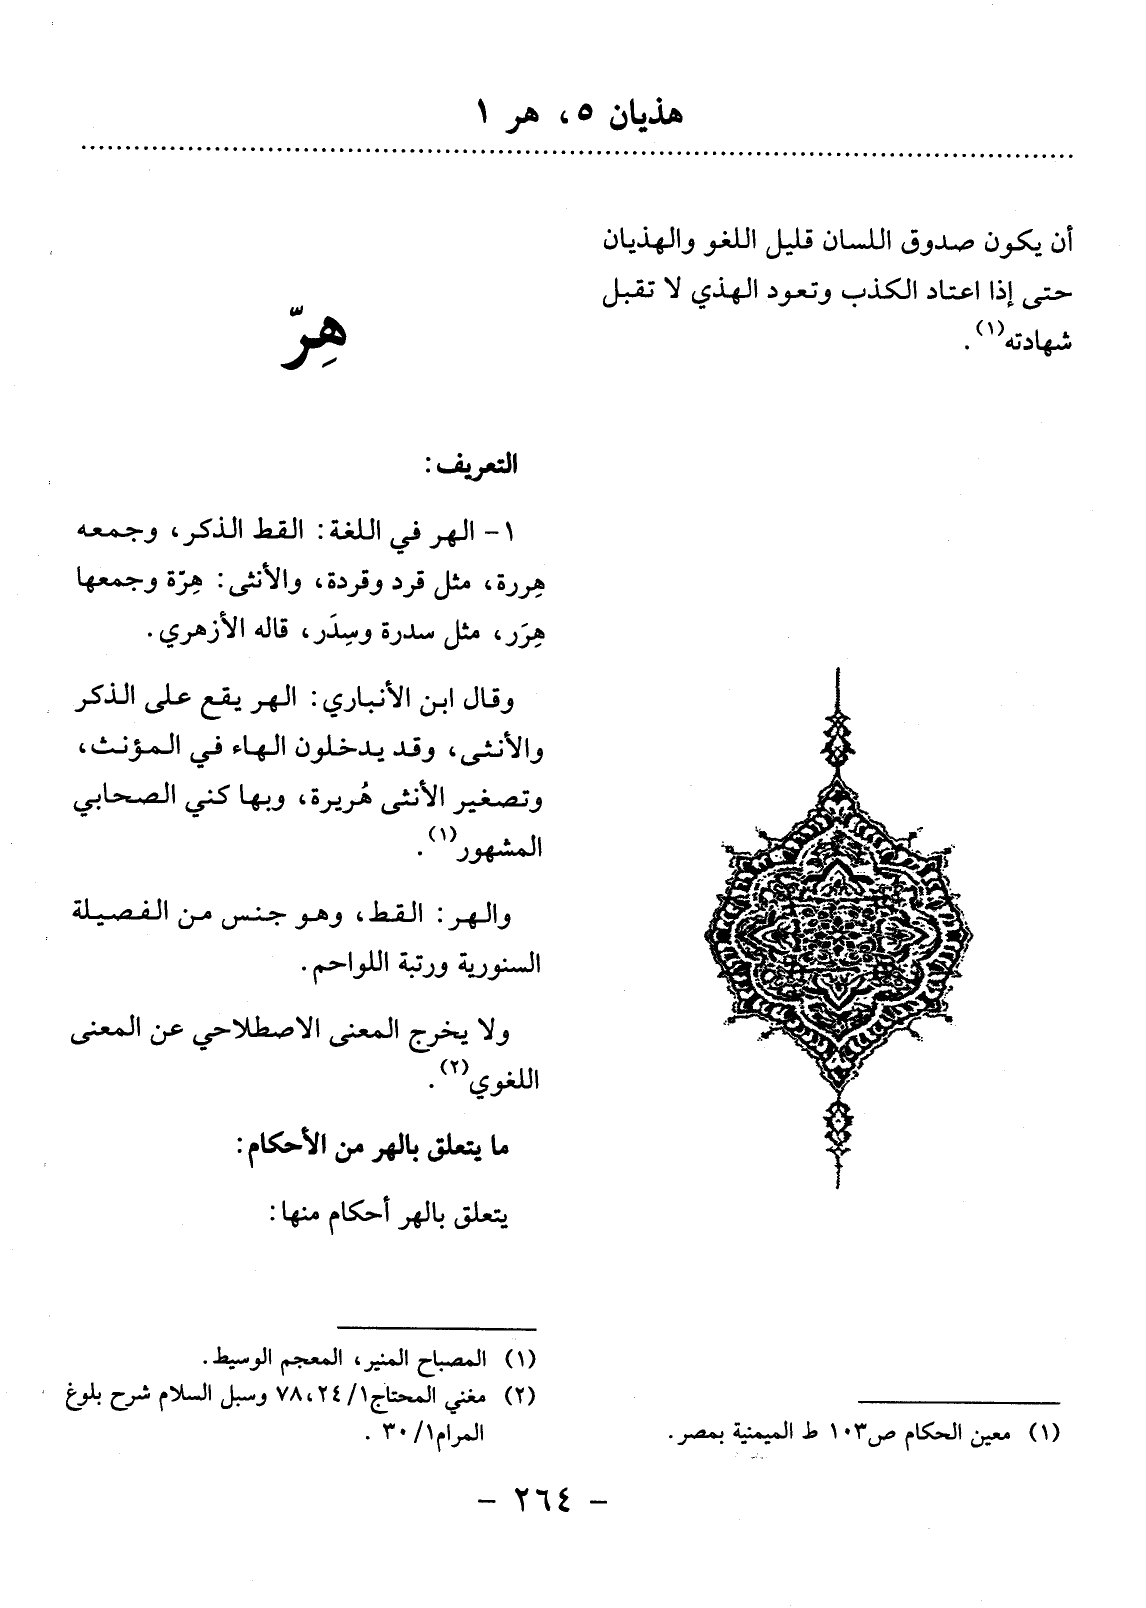 هذيان ٥، هر ١
أن يكون صدوق اللسان قليل اللغو والهذيان
حتى إذا اعتاد الكذب وتعود الهذي لا تقبل
شهادته(١).
(١) معين الحكام ص١٠٣ ط الميمنية بمصر.
هِرّ
التعريف:
١- الهر في اللغة: القط الذكر، وجمعه
هِررة، مثل قرد وقردة، والأنثى: هِرّة وجمعها
هِرَر، مثل سدرة وسِدَر، قاله الأزهري.
وقال ابن الأنباري: الهر يقع على الذكر
والأنثى، وقد يدخلون الهاء في المؤنث،
وتصغير الأنثى هُريرة، وبها كني الصحابي
المشهور(١).
والهر: القط، وهو جنس من الفصيلة
السنورية ورتبة اللواحم.
ولا يخرج المعنى الاصطلاحي عن المعنى
اللغوي(٢).
ما يتعلق بالهر من الأحكام:
يتعلق بالهر أحكام منها:
(١) المصباح المنير، المعجم الوسيط.
(٢) مغني المحتاج١/ ٢٤،٧٨ وسبل السلام شرح بلوغ
المرام١/ ٣٠ .
- ٢٦٤ -